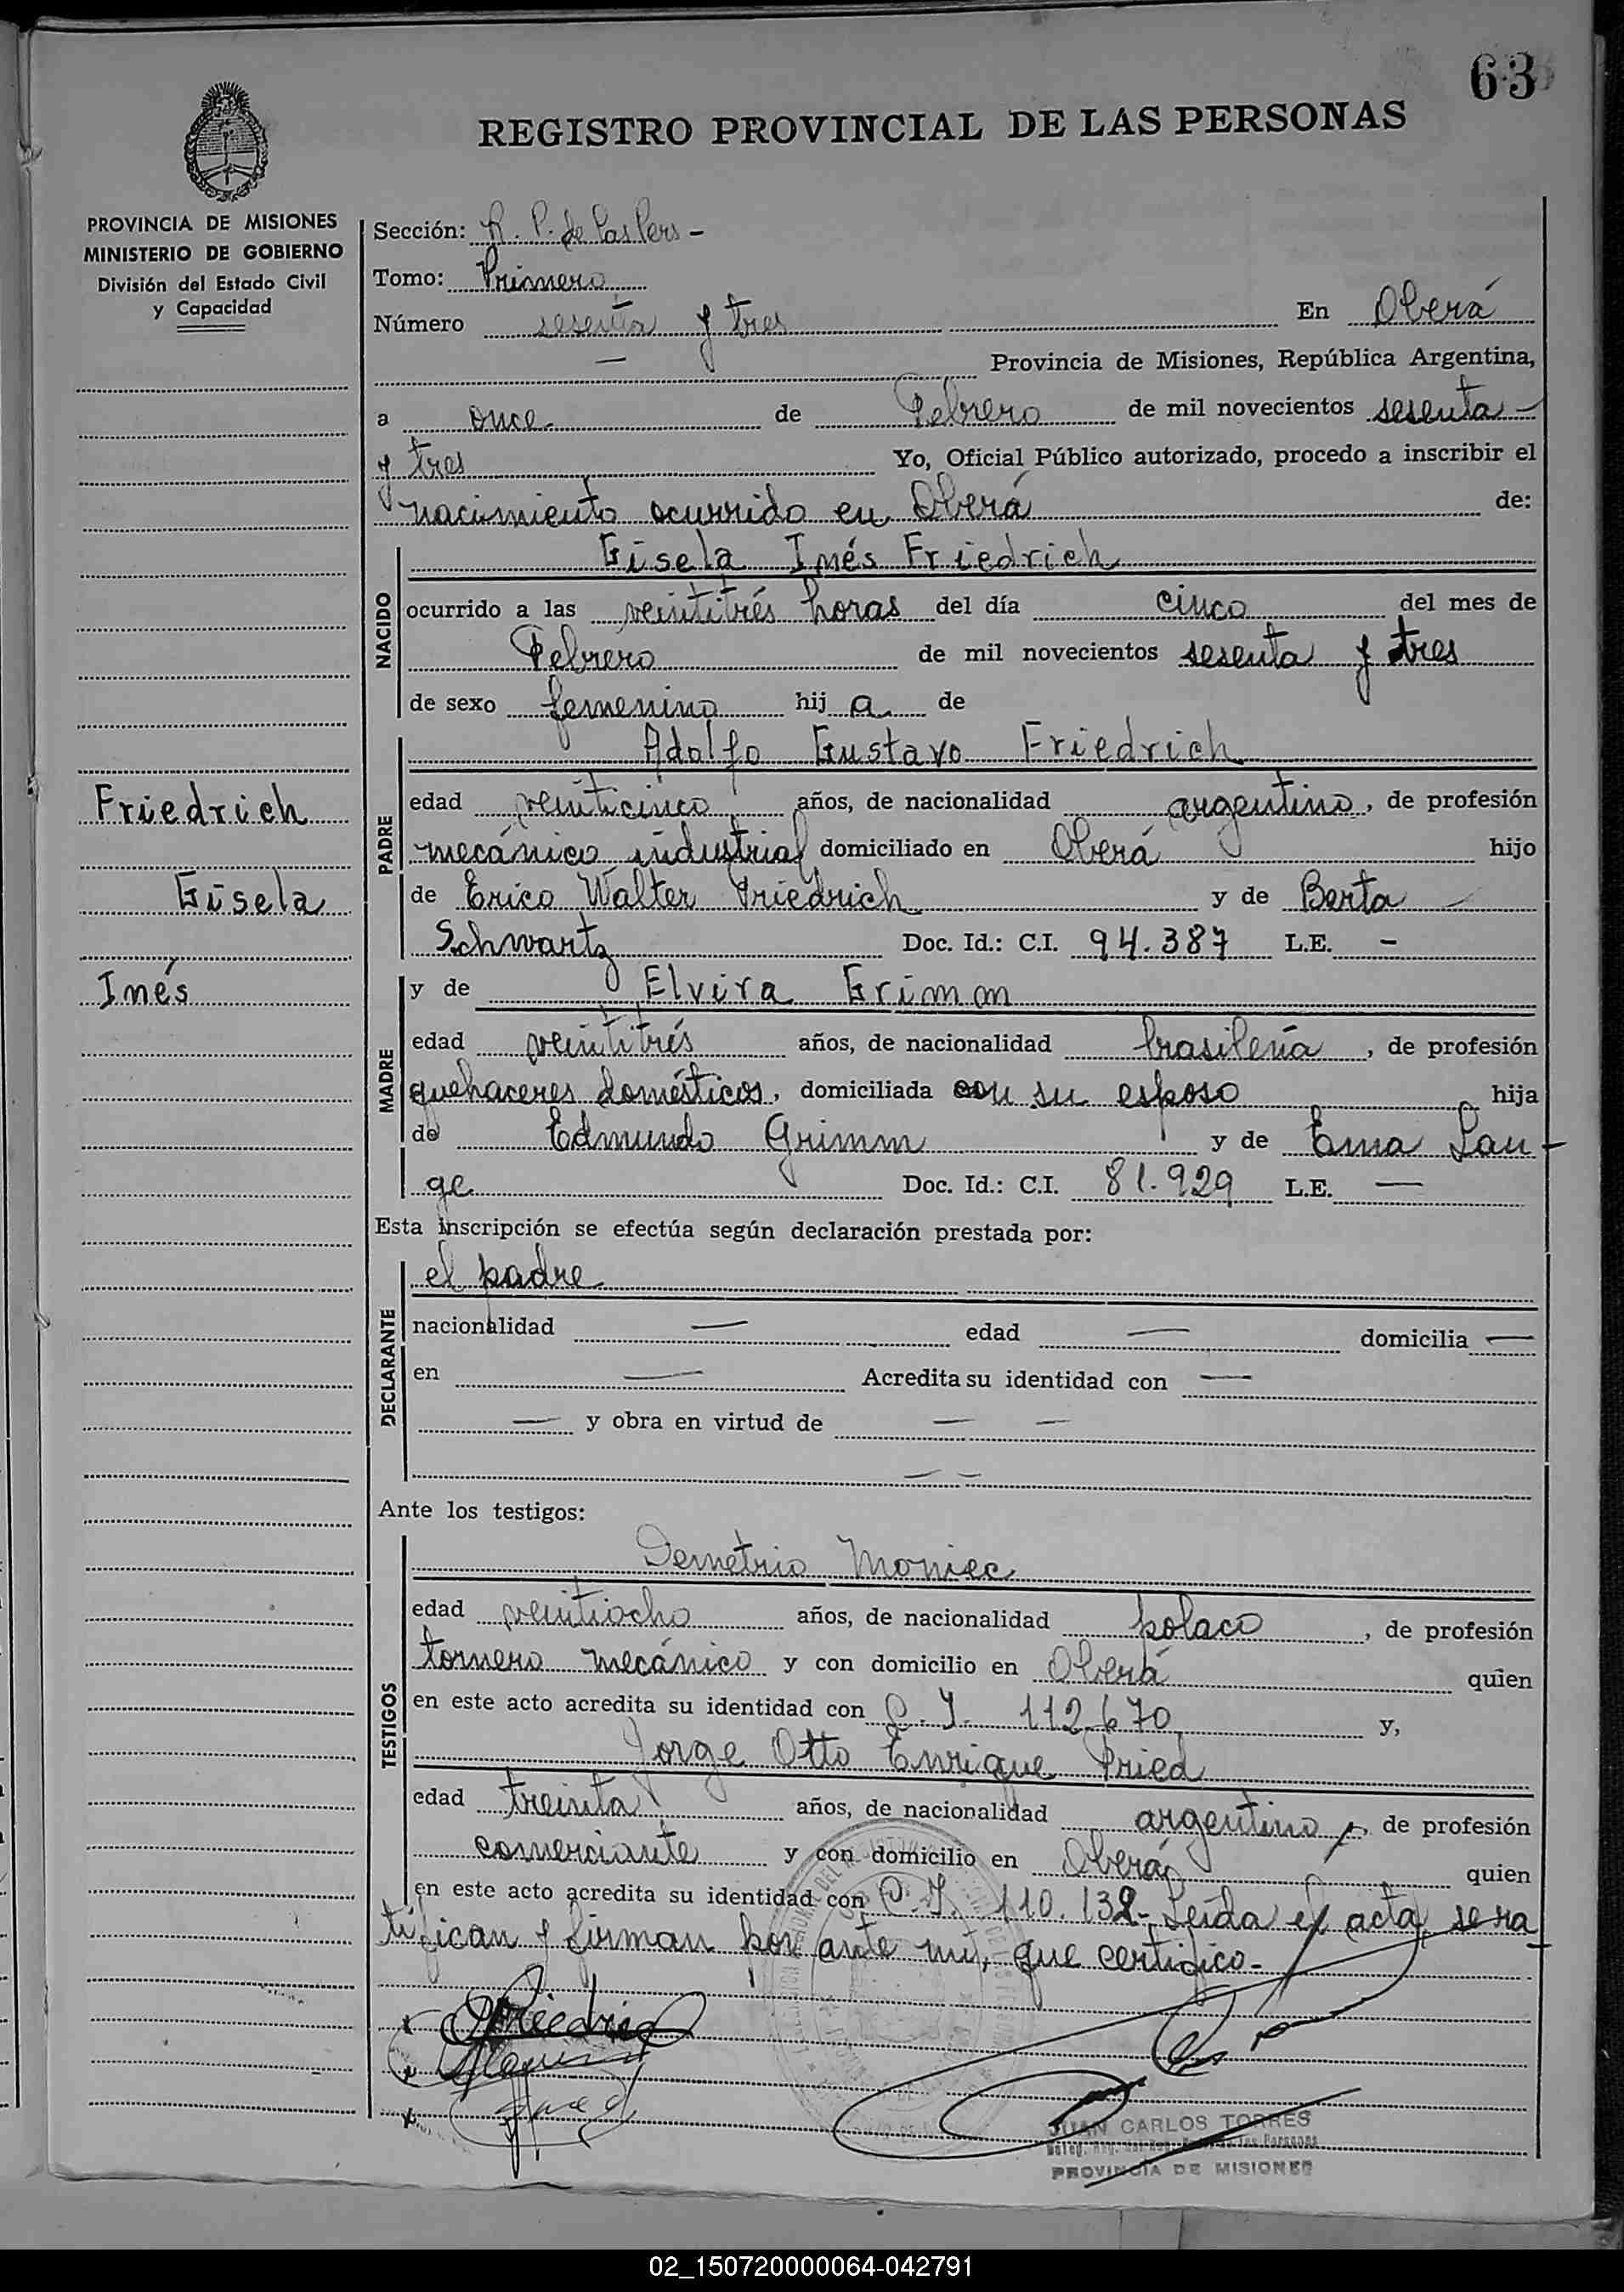 63
REGISTRO PROVINCIAL DE LAS PERSONAS
PROVINCIA DE MISIONES
MINISTERIO DE GOBIERNO
División del Estado Civil
y Capacidad
Friedrich
Gisela
Inés
Sección: R. P. de las Pers -
Tomo: Primero
Número sesenta y tres En Oberá
— Provincia de Misiones, República Argentina,
a once de Febrero de mil novecientos sesenta -
y tres Yo, Oficial Público autorizado, procedo a inscribir el
nacimiento ocurrido en Oberá de:
NACIDO
Gisela Inés Friedrich
ocurrido a las veintitrés horas del día cinco del mes de
Febrero de mil novecientos sesenta y tres
de sexo femenino hij a de
PADRE
Adolfo Gustavo Friedrich
edad veinticinco años, de nacionalidad argentino, de profesión
mecánico industrial domiciliado en Oberá hijo
de Erico Walter Friedrich y de Berta —
Schwartz Doc. Id.: C.I. 94.387 L.E. -
MADRE
y de Elvira Grimm
edad veintitrés años, de nacionalidad brasileña, de profesión
quehaceres domésticos, domiciliada con su esposo hija
de Edmundo Grimm y de Ema Lan-
ge Doc. Id.: C.I. 81.929 L.E. —
Esta inscripción se efectúa según declaración prestada por:
DECLARANTE
el padre
nacionalidad — edad — domicilia —
en — Acredita su identidad con —
— y obra en virtud de — —
— —
Ante los testigos:
TESTIGOS
Demetrio Moniec
edad veintiocho años, de nacionalidad polaco, de profesión
tornero mecánico y con domicilio en Oberá quien
en este acto acredita su identidad con C. I. 112.670 y,
Jorge Otto Enrique Fried
edad treinta años, de nacionalidad argentino, de profesión
comerciante y con domicilio en Oberá quien
en este acto acredita su identidad con C. I. 110.132 - Leída el acta, se ra-
tifican y firman por ante mí, que certifico -
JUAN CARLOS TORRES
PROVINCIA DE MISIONES
02_150720000064-042791